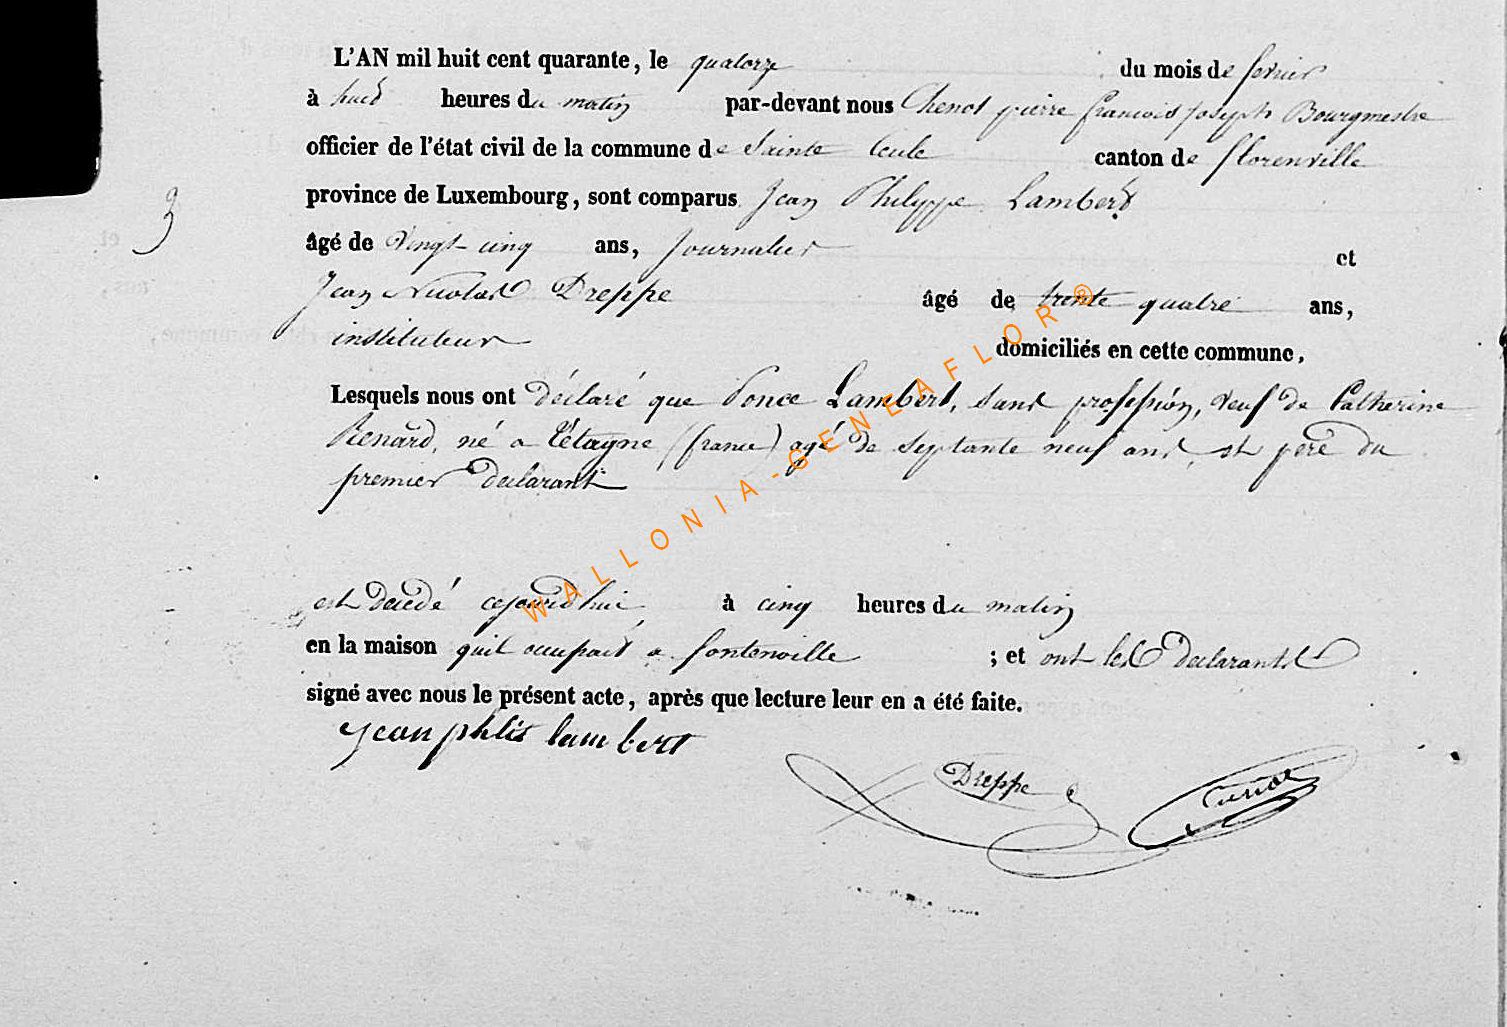 L'AN mil huit cent quarante, le quatorze du mois de fevrier
à huit heures du matin par-devant nous Chenot pierre francois Joseph Bourgmestre
officier de l'état civil de la commune de Sainte Cecile canton de florenville
province de Luxembourg, sont comparus Jean Philippe Lambert
3
âgé de vingt-cinq ans, journalier et
Jean Nicolas Dreppe âgé de trente quatre ans,
instituteur domiciliés en cette commune,
Lesquels nous ont déclaré que Ponce Lambert, sans profession, veuf de Catherine
Renard, né a Tétaigne (france) agé de septante neuf ans, et pere du
premier declarant
est decedé cejourd'hui à cinq heures du matin
en la maison quil occupait a fontenoille ; et ont les declarants
signé avec nous le présent acte, après que lecture leur en a été faite.
jean philis lambert
Dreppe Chenot
WALLONIA-GENEAFLOR®